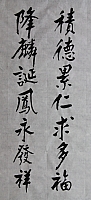 積德累仁求多福
降麟誕鳳永發祥